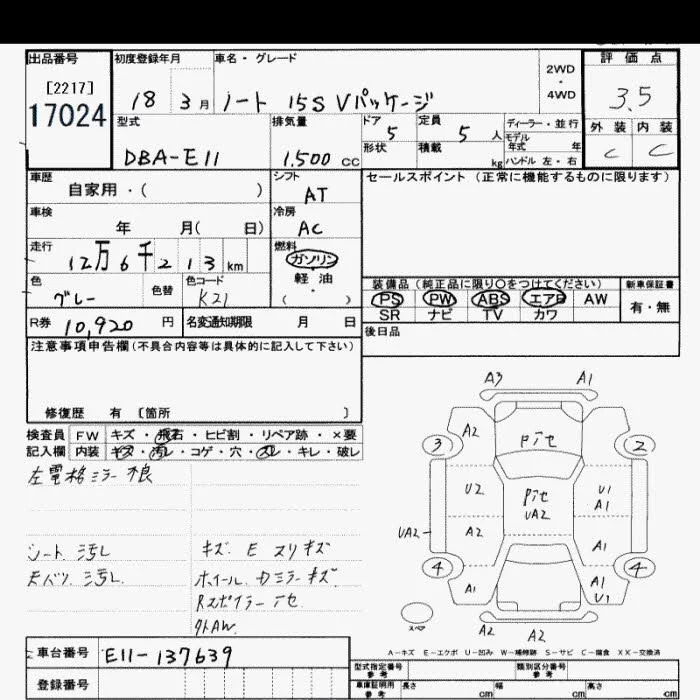 出品番号
[2217]
17024
初度登録年月
18 3月
車名・グレード
ノート 15S Vパッケージ
2WD
・
4WD
評価点
3.5
外装 内装
C C
型式
DBA-E11
排気量
1.500 CC
ドア 5
形状
定員 5 人
積載 kg
ディーラー・並行
モデル
年式 年
ハンドル 左・右
車歴
自家用・( )
シフト
AT
セールスポイント (正常に機能するものに限ります)
車検
年 月( 日)
冷房
AC
走行
12万6千213km
燃料
ガソリン
軽油
( )
色
グレー
色替
色コード
K21
装備品 (純正品に限り〇をつけてください)
PS PW ABS エアB AW
SR ナビ TV カワ
新車保証書
有・無
R券 10,920 円
名変通知期限 月 日
後日品
注意事項申告欄(不具合内容等は具体的に記入して下さい)
修復歴 有 [箇所 ]
検査員
記入欄
FW キズ・飛石・ヒビ割・リペア跡・×要
内装 キズ・汚レ・コゲ・穴・スレ・キレ・破レ
左電格ミラー不良
シート汚レ
天バリ汚レ
キズ.E スリキズ
ホイール.Dミラーキズ
Rスポイラーハセ
外AW
A3 A1
3 A2 Pハセ 2
U2 Pハセ U1
UA2 A1
UA2 A2 A1
4 A1 A1 4
U1
スペア
A2 A2
A-キズ E-エクボ U-凹み W-補修跡 S-サビ C-腐食 XX-交換済
車台番号 E11-137639
登録番号
型式指定番号
参考
類別区分番号
参考
車庫証明用
参考
長さ cm 幅 cm 高さ cm